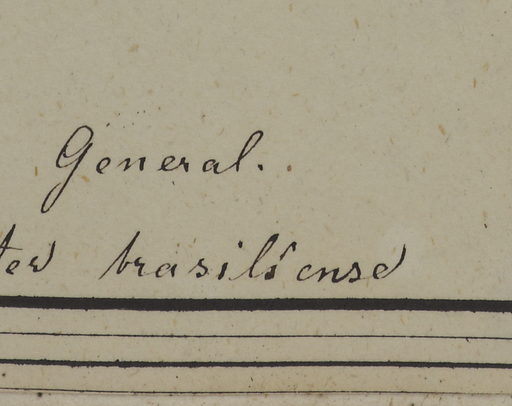 General.
ter brasiliense